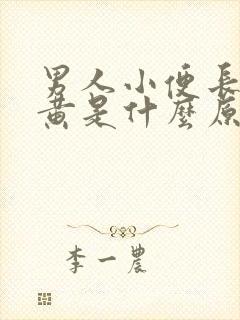 男人小便長
黃是什麼原
李一農